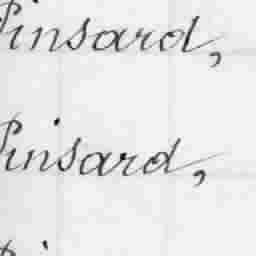 Pinsard,
Pinsard,